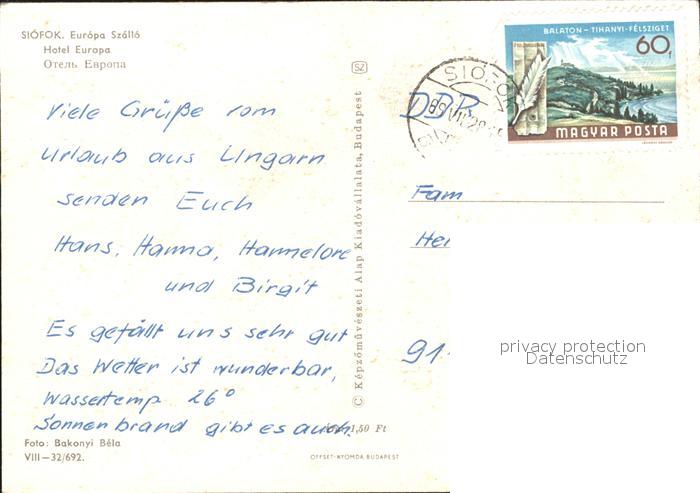 SIÓFOK. Európa Szálló
Hotel Europa
Отель Европа
Viele Grüße vom
Urlaub aus Ungarn
senden Euch
Hans, Hanna, Hannelore
und Birgit
Es gefällt uns sehr gut
Das Wetter ist wunderbar,
Wassertemp. 26°
Sonnenbrand gibt es auch.
1,50 Ft
Foto: Bakonyi Béla
VIII—32/692.
OFFSET-NYOMDA BUDAPEST
SZ
© Képzőművészeti Alap Kiadóvállalata, Budapest
BALATON – TIHANYI-FÉLSZIGET
60f
MAGYAR POSTA
SIÓFOK
DDR
Fam
Hei
91
privacy protection
Datenschutz